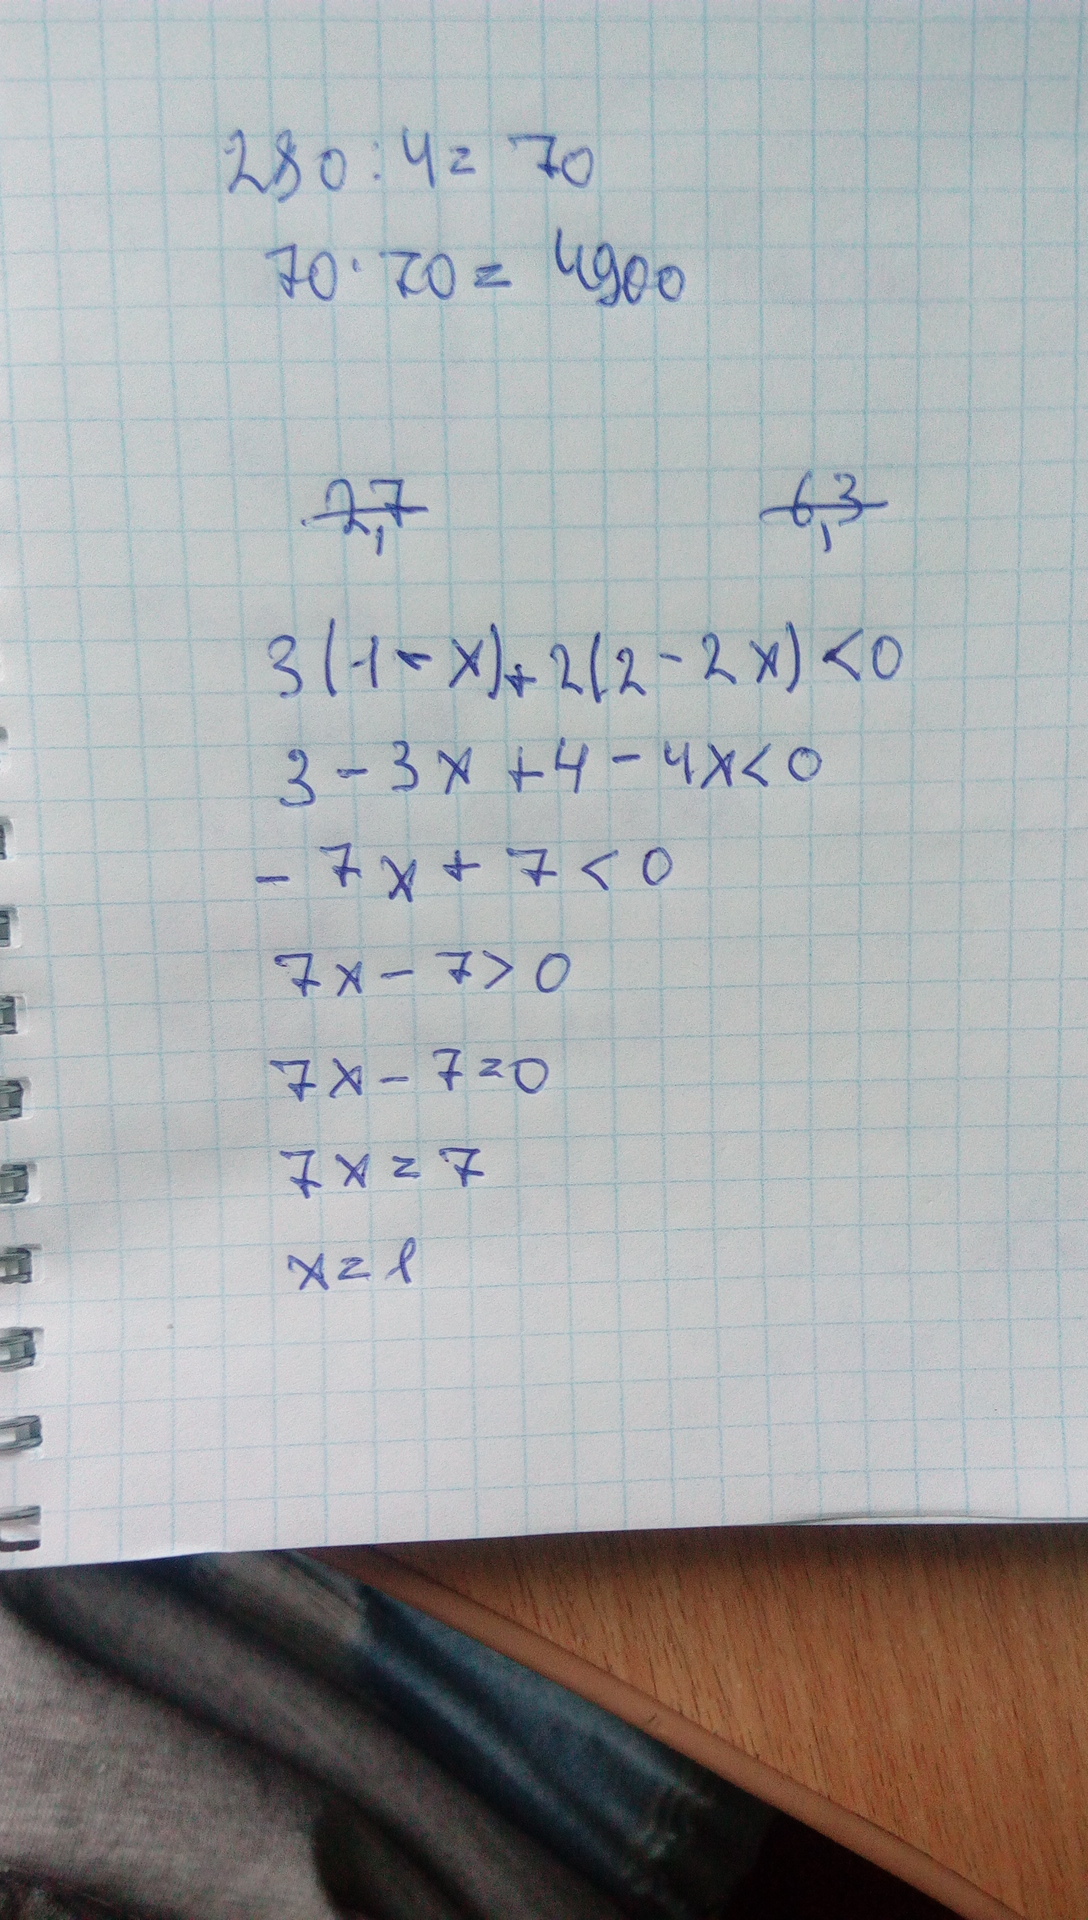 280 : 4 = 70
70 · 70 = 4900
2,7 6,3
3(1 - x) + 2(2 - 2x) < 0
3 - 3x + 4 - 4x < 0
- 7x + 7 < 0
7x - 7 > 0
7x - 7 = 0
7x = 7
x = 1